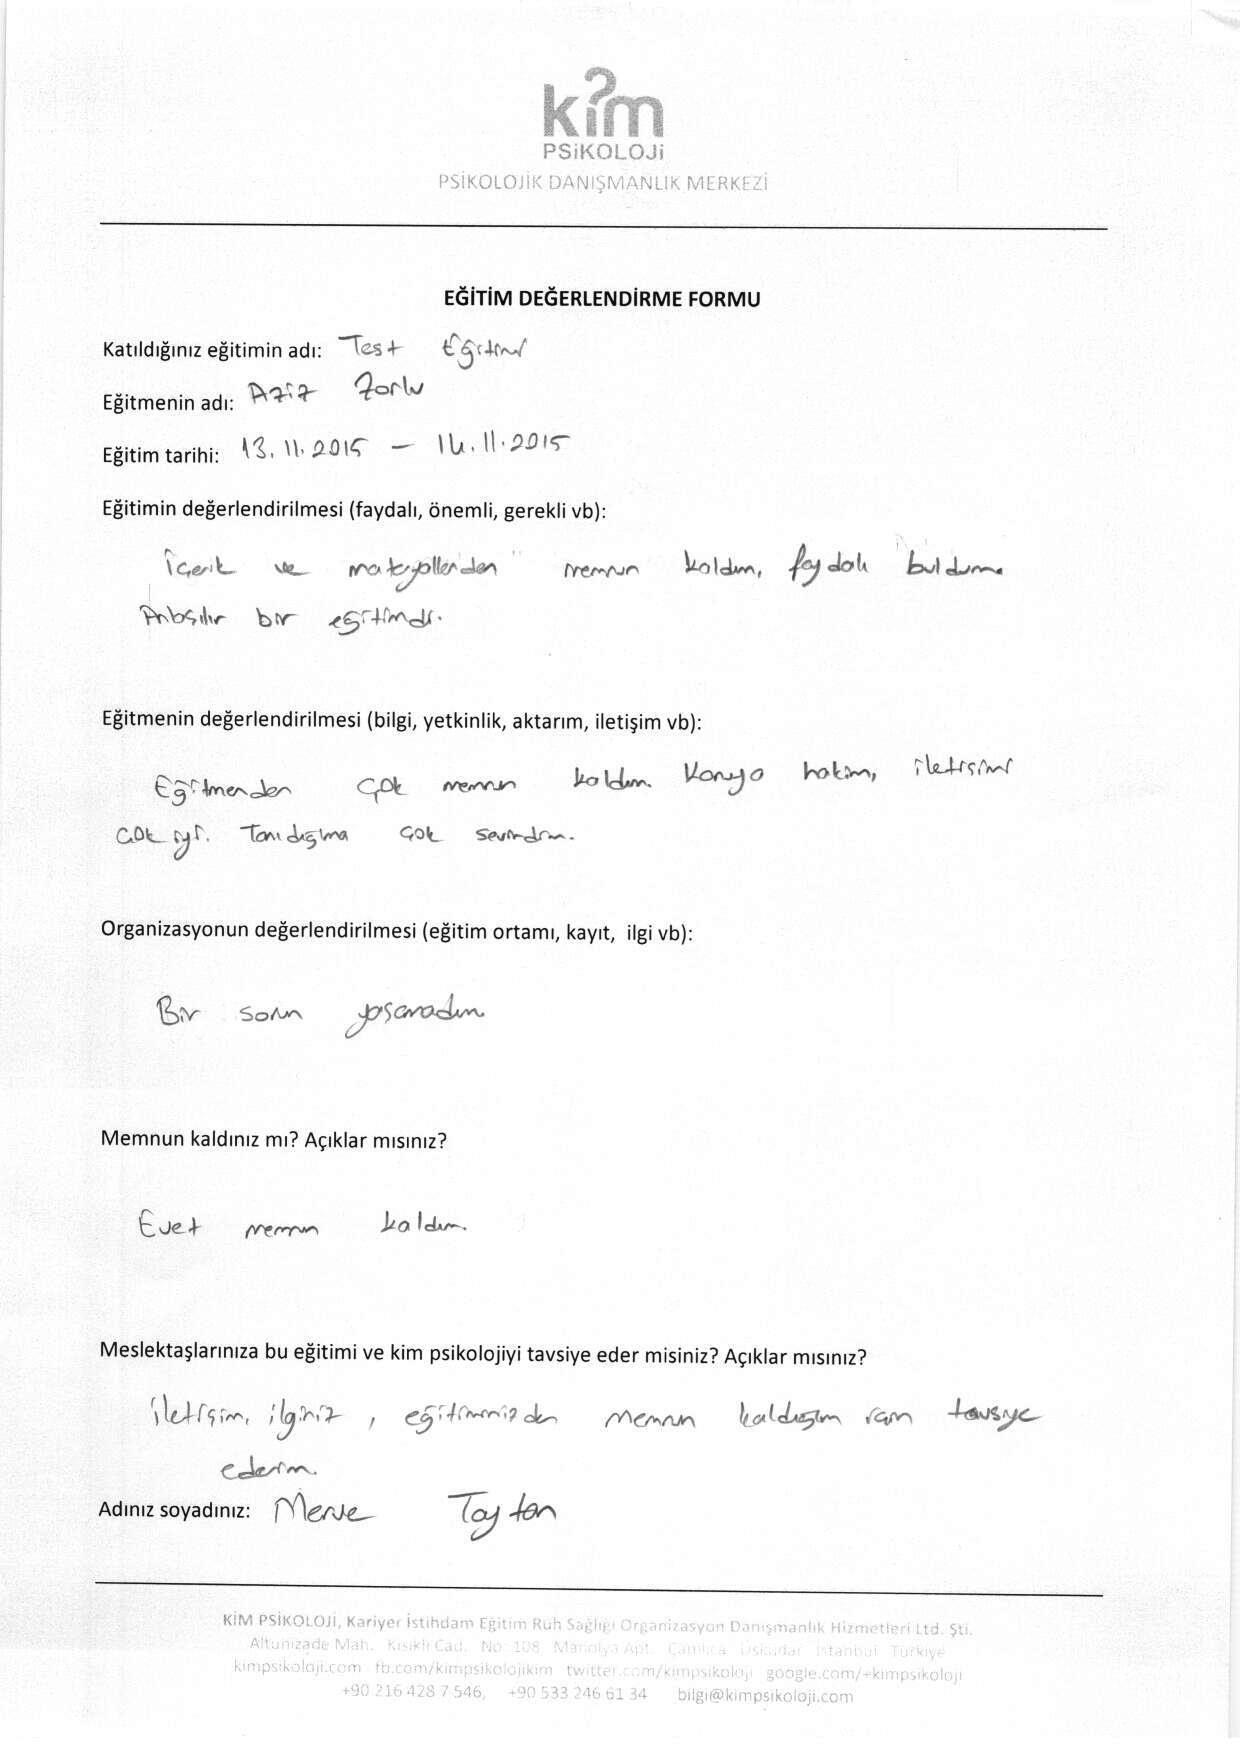 kim
PSiKOLOJi
PSİKOLOJİK DANIŞMANLIK MERKEZİ
EĞİTİM DEĞERLENDİRME FORMU
Katıldığınız eğitimin adı: Test Eğitimi
Eğitmenin adı: Aziz Zorlu
Eğitim tarihi: 13.11.2015 – 14.11.2015
Eğitimin değerlendirilmesi (faydalı, önemli, gerekli vb):
İçerik ve materyallerden memnun kaldım, faydalı buldum.
Anlaşılır bir eğitimdi.
Eğitmenin değerlendirilmesi (bilgi, yetkinlik, aktarım, iletişim vb):
Eğitmenden çok memnun kaldım. Konuya hakim, iletişimi
çok iyi. Tanıdığıma çok sevindim.
Organizasyonun değerlendirilmesi (eğitim ortamı, kayıt, ilgi vb):
Bir sorun yaşamadım
Memnun kaldınız mı? Açıklar mısınız?
Evet memnun kaldım.
Meslektaşlarınıza bu eğitimi ve kim psikolojiyi tavsiye eder misiniz? Açıklar mısınız?
İletişim, ilginiz, eğitiminizden memnun kaldığım için tavsiye
ederim.
Adınız soyadınız: Merve Taytan
KİM PSİKOLOJİ, Kariyer İstihdam Eğitim Ruh Sağlığı Organizasyon Danışmanlık Hizmetleri Ltd. Şti.
Altunizade Mah. Kısıklı Cad. No: 108 Manolya Apt. Çamlıca Üsküdar İstanbul Türkiye
kimpsikoloji.com fb.com/kimpsikolojikim twitter.com/kimpsikoloji google.com/+kimpsikoloji
+90 216 428 7 546, +90 533 246 61 34 bilgi@kimpsikoloji.com